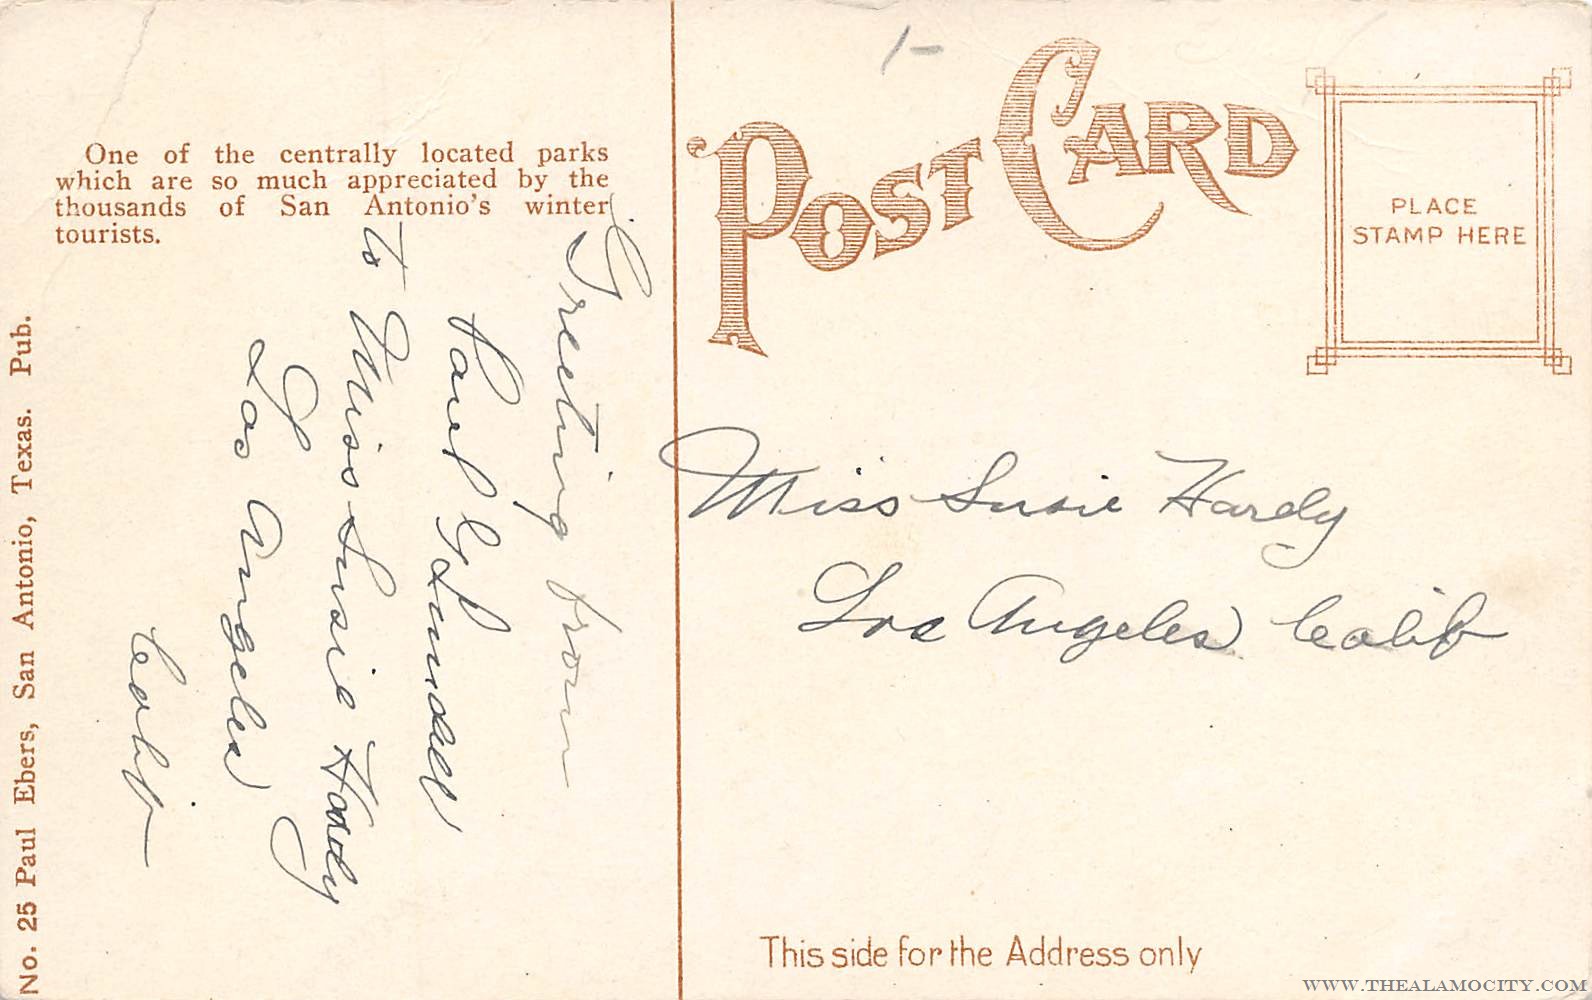 1-
POST CARD
PLACE
STAMP HERE
One of the centrally located parks
which are so much appreciated by the
thousands of San Antonio's winter
tourists.
No. 25 Paul Ebers, San Antonio, Texas. Pub.
Greeting from
Paul G
to Miss Susie Hardy
Los Angeles
Calif
Miss Susie Hardy
Los Angeles Calif
This side for the Address only
WWW.THEALAMOCITY.COM